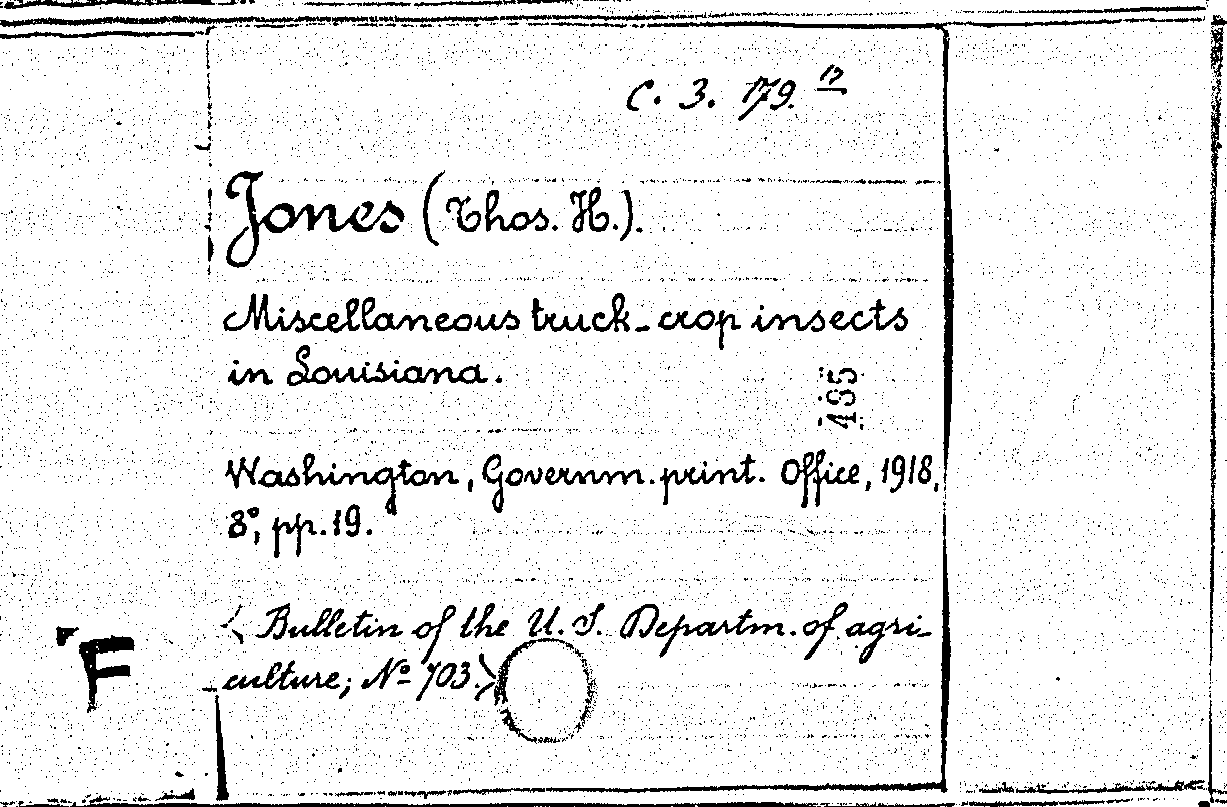 C. 3. 179. 17
Jones (Thos. H.).
Miscellaneous truck-crop insects
in Louisiana.
485
Washington, Governm. print. Office, 1918,
8°, pp. 19.
< Bulletin of the U. S. Departm. of agri-
culture; Nº 703.>
F